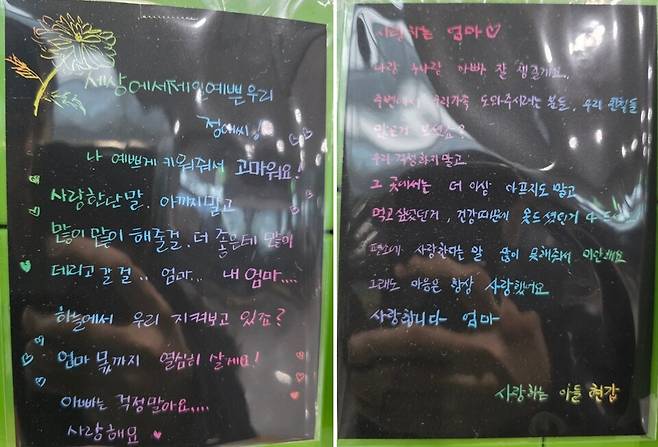 세상에서제일예쁜우리
정애씨!
나 예쁘게 키워줘서 고마워요!
사랑한단말. 아끼지말고
많이 많이 해줄걸. 더 좋은데 많이
데리고갈걸.. 엄마... 내 엄마....
하늘에서 우리 지켜보고 있죠?
엄마 몫까지 열심히 살게요!
아빠는 걱정말아요....
사랑해요
사랑하는 엄마♡
나랑 누나랑 아빠 잘 챙길게요.
주변에서 우리가족 도와주시려는 분들, 우리 친척들
많은거 보셨죠?
우리 걱정하지 말고
그 곳에서는 더 이상 아프지도 말고
먹고싶었던거, 건강때문에 못드셨던거 다
평소에 사랑한다는 말 많이 못해줘서 미안해요
그래도 마음은 항상 사랑했어요
사랑합니다 엄마
사랑하는 아들 현갑